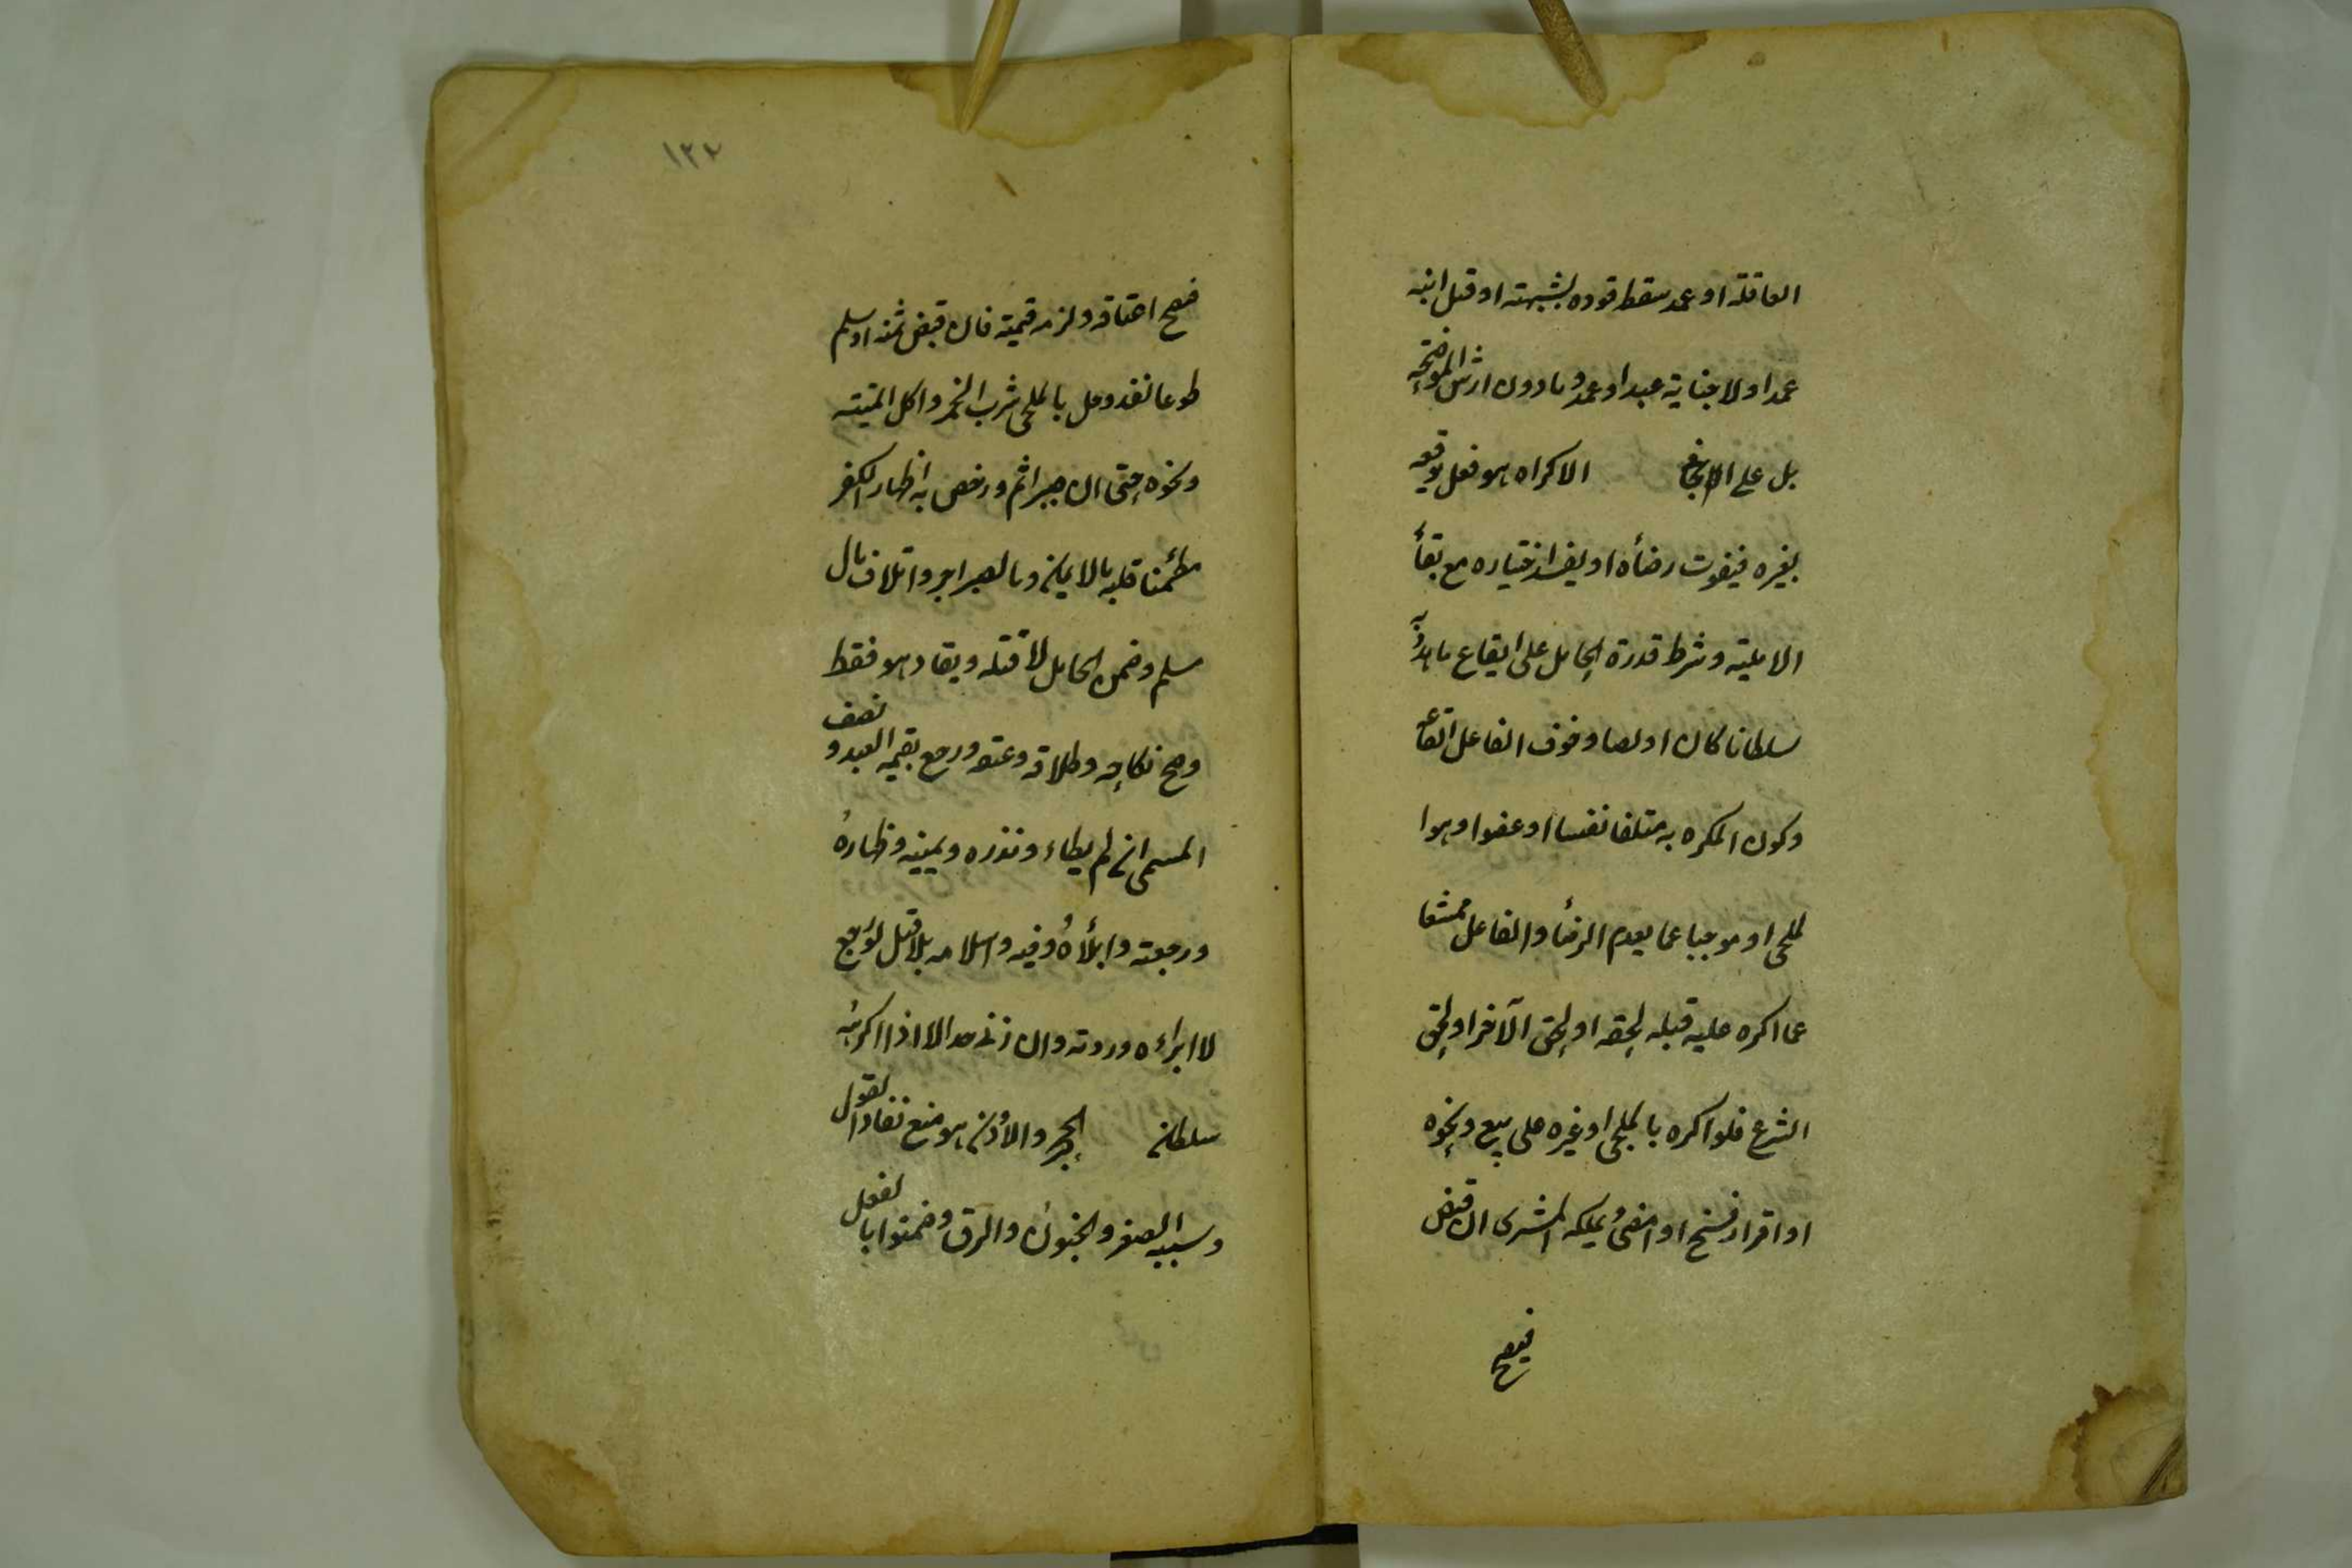 العاقلة او عمد سقط قوده بشبهته او قتل ابنه
عمدا ولا جناية عبد او عمد وما دون ارش الموضحة
بل على الجانى الاكراه هو فعل يوقعه
بغيره فيفوت رضأه او يفسد اختياره مع بقأ
الاهلية وشرط قدرة الحامل على ايقاع ما هدد به
سلطانا كان او لصا وخوف الفاعل ايقاعه
وكون المكره به متلفا نفسا او عضوا وهوا
لملجى او موجبا غما يعدم الرضأ والفاعل ممتنعا
عما اكره عليه قبله لحقه او لحق آلاخر او لحق
الشرع فلو اكره بالملجى او غيره على بيع ونحوه
او اقرار فسخ او امضى ويملكه المشترى ان قبض
فيصح
فيصح اعتاقه ولزمه قيمته فان قبض ثمنه او سلم
طوعا نفد وحل بالملجى شرب الخمر واكل الميتة
ونحوه حتى ان صبر اثم ورخص به اظهار الكفر
مطمئنا قلبه بالايمان وبالصبر اجر واتلاف مال
مسلم وضمن الحامل لا قتله ويقاد هو فقط
وصح نكاحه وطلاقه وعتقه ورجع بقيمة العبد و نصف
المسمى ان لم يطاء ونذره ويمينه وظهاره
ورجعته وايلأه وفيه واسلامه بلا قتل لو رجع
لا ابراءه وردته وان زنى حد الا اذا اكرهه
سلطان الحجر والاذن هو منع نفاد القول
وسببه الصغر والجنون والرق وضمنوا بالفعل
١٢٢